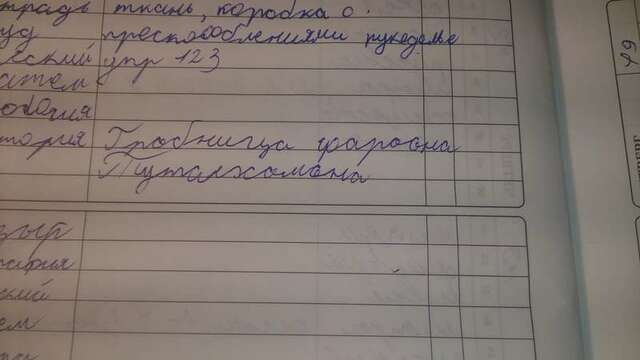 традь ткань, коробка с.
уд пресковоблениями рукоделье
еский упр 123
атем
ология
тория Гробница фароона
Туталхомона
зыр
рафия
ский
ем